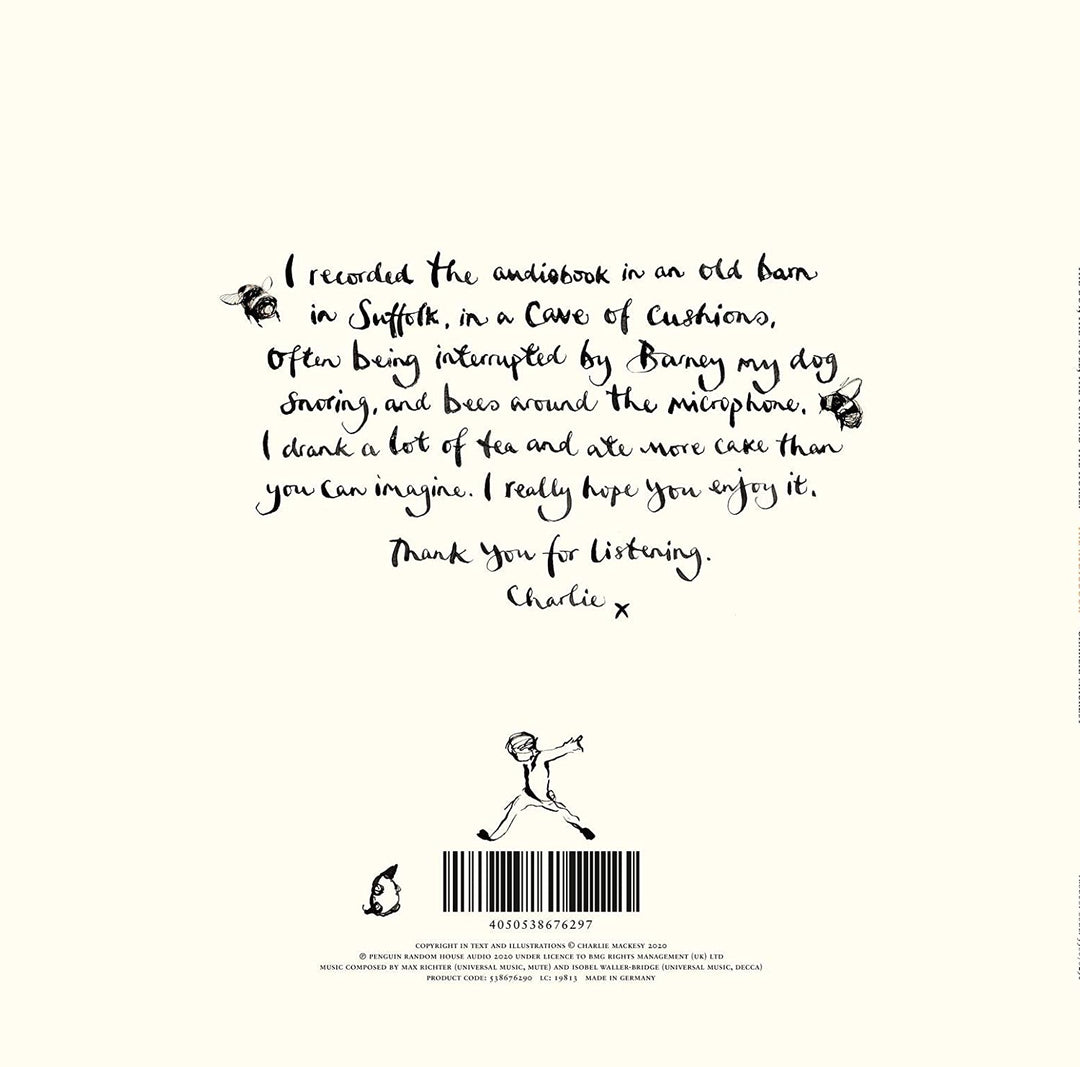 I recorded the audiobook in an old barn
in Suffolk, in a Cave of cushions,
often being interrupted by Barney my dog
snoring, and bees around the microphone.
I drank a lot of tea and ate more cake than
you can imagine. I really hope you enjoy it.
Thank you for listening.
Charlie x
4050538676297
COPYRIGHT IN TEXT AND ILLUSTRATIONS © CHARLIE MACKESY 2020
℗ PENGUIN RANDOM HOUSE AUDIO 2020 UNDER LICENCE TO BMG RIGHTS MANAGEMENT (UK) LTD
MUSIC COMPOSED BY MAX RICHTER (UNIVERSAL MUSIC, MUTE) AND ISOBEL WALLER-BRIDGE (UNIVERSAL MUSIC, DECCA)
PRODUCT CODE: 538676290 LC: 19813 MADE IN GERMANY